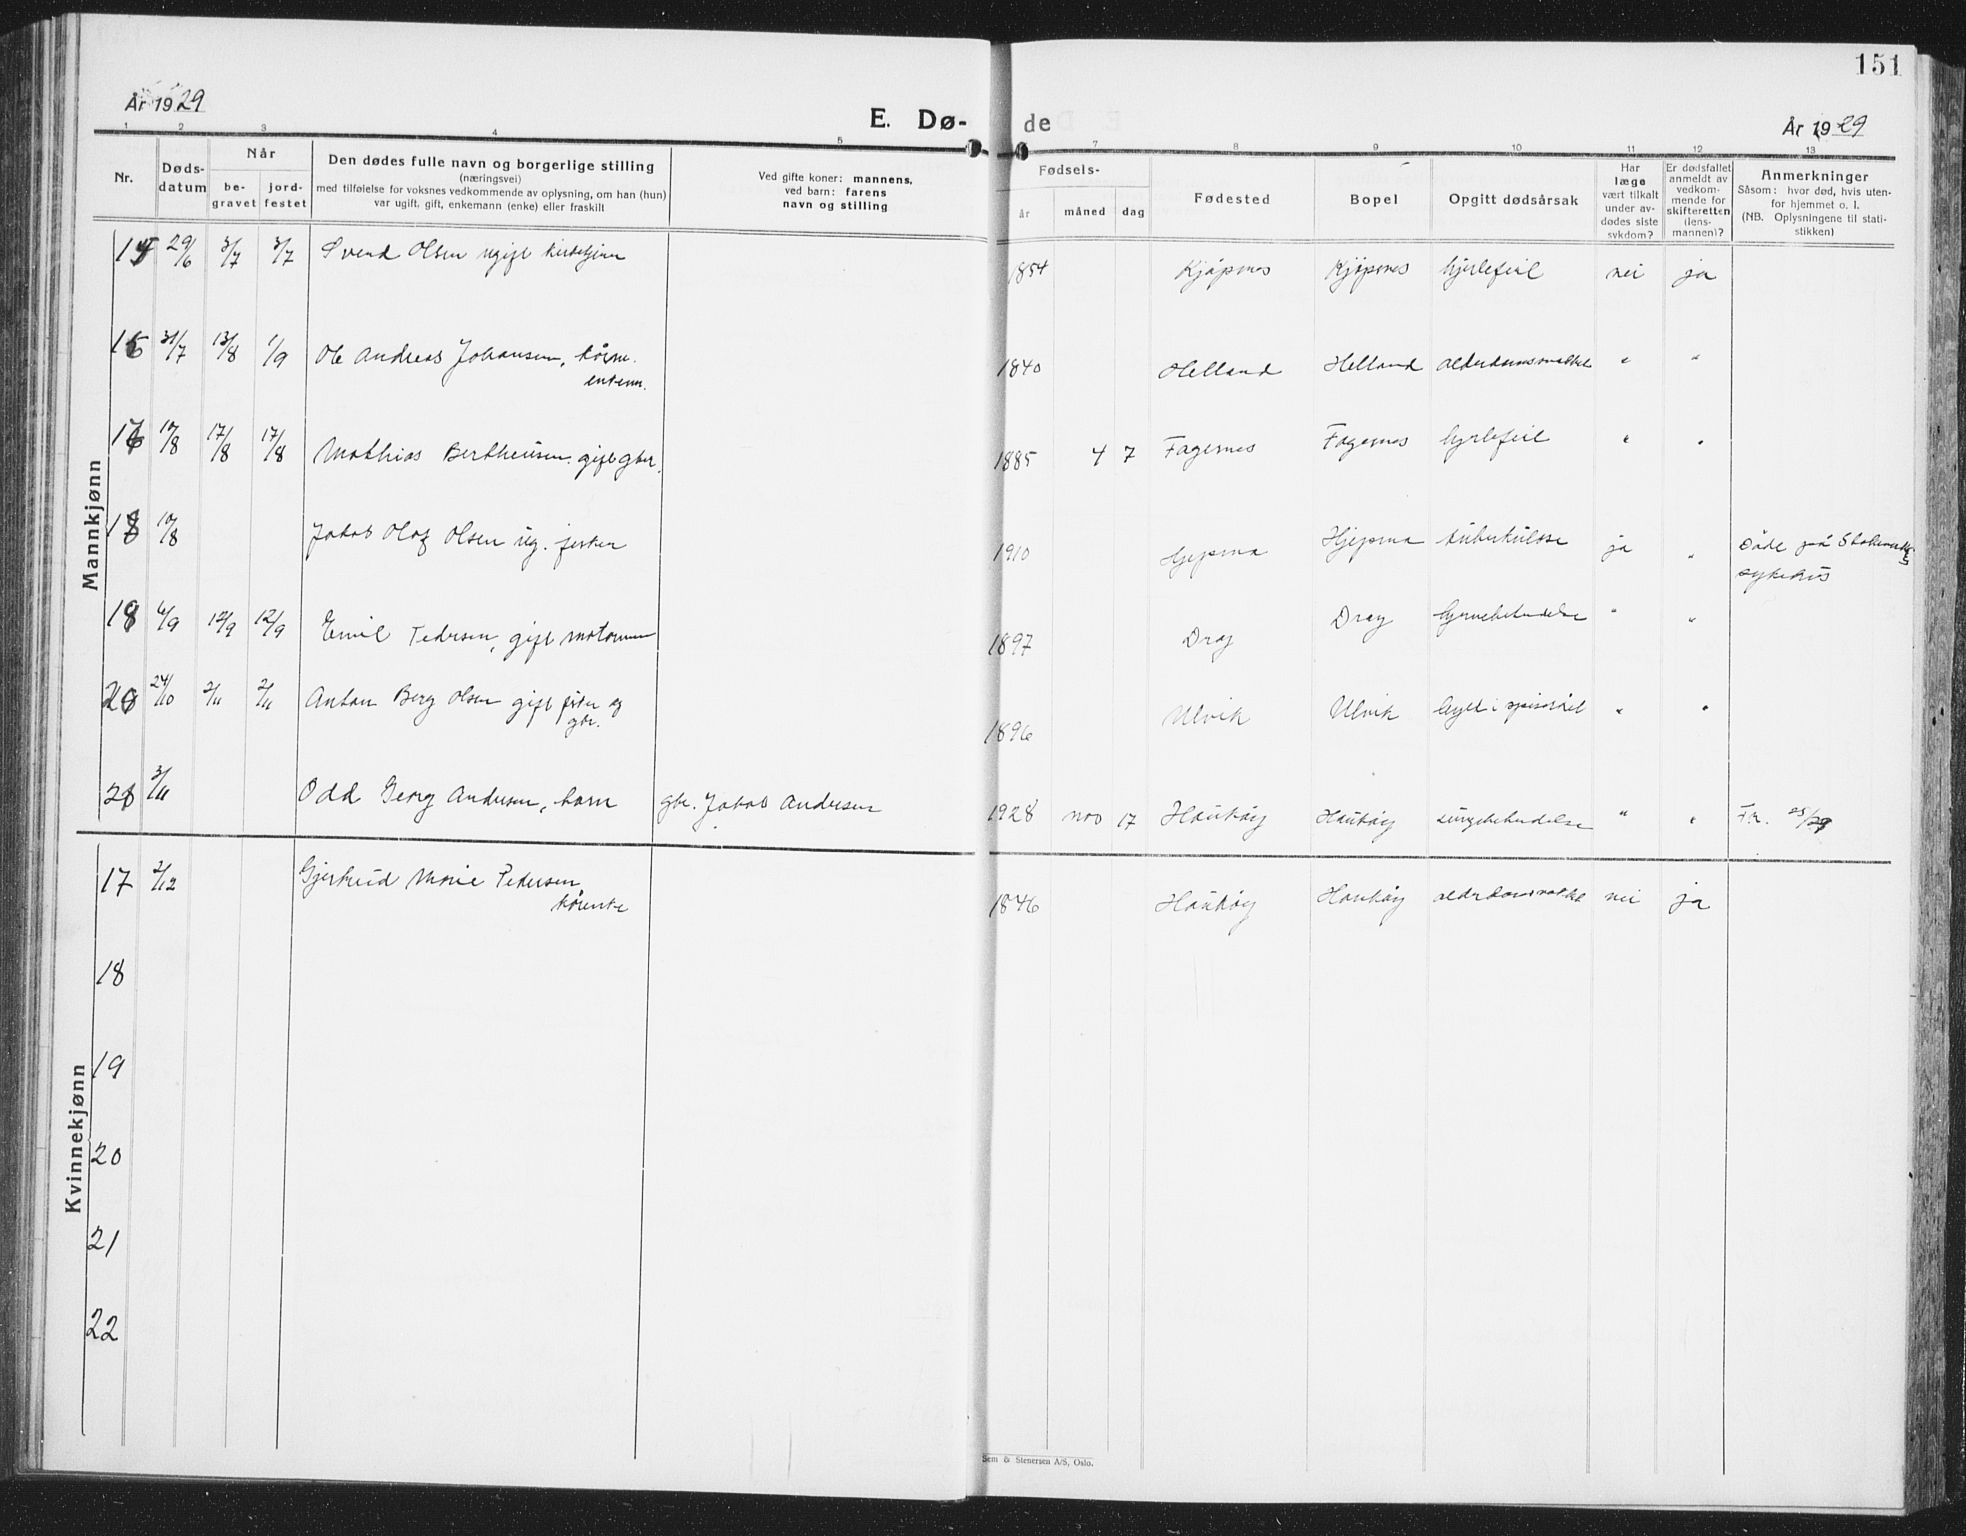 151
År 1929
E. Dø-
de
År 1929
1 2 3 4 5 7 8 9 10 11 12 13
Nr.
Døds-
datum
Når
be-
gravet
jord-
festet
Den dødes fulle navn og borgerlige stilling
(næringsvei)
med tilføielse for voksnes vedkommende av oplysning, om han (hun)
var ugift, gift, enkemann (enke) eller fraskilt
Ved gifte koner: mannens,
ved barn: farens
navn og stilling
Fødsels-
år
måned
dag
Fødested
Bopel
Opgitt dødsårsak
Har
læge
vært tilkalt
under av-
dødes siste
sykdom?
Er dødsfallet
anmeldt av
vedkom-
mende for
skifteretten
(lens-
mannen)?
Anmerkninger
Såsom: hvor død, hvis uten-
for hjemmet o. l.
(NB. Oplysningene til stati-
stikken)
Mannkjønn
15 29/6 3/7 3/7 Svend Olsen ugift 1854 Kjøpsnes Kjøpsnes hjertefeil nei ja
16 31/7 13/8 1/9 Ole Andreas Johansen, kårm. 1840 Helland Helland alderdomssvakhet " "
enkem.
17 10/8 17/8 17/8 Mathias Bertheusen gift gbr. 1885 4 7 Fagernes Fagernes hjertefeil " "
18 10/8 Jakob Olaf Olsen ug. fisker 1910 Hjepsna tuberkulose ja " Døde på Stokmarkn.
sykehus
19 6/9 12/9 12/9 Emil Pedersen, gift motormann 1897 Drag Drag hjernebetendelse " "
20 24/10 2/11 2/11 Anton Berg Olsen gift fisker og 1896 Ulvik Ulvik " "
gbr.
21 3/11 Odd Georg Andersen, barn gbr. Jakob Andersen 1928 nov 17 Haukøy Haukøy lungebetendelse " "
Kvinnekjønn
17 2/12 Gjertrud Marie Pedersen 1846 Haukøy Haukøy alderdomssvakhet nei ja
kårenke
18
19
20
21
22
Sem & Stenersen A/S, Oslo.